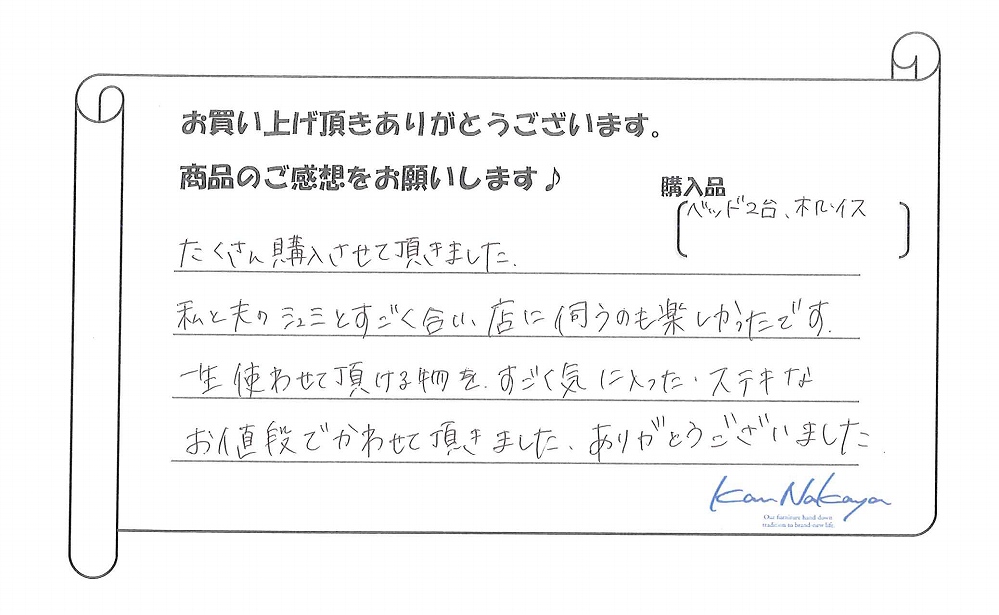 お買い上げ頂きありがとうございます。
商品のご感想をお願いします♪
購入品
ベッド2台、木ルイス
たくさん購入させて頂きました.
私と夫のシュミとすごく合い、店に伺うのも楽しかったです.
一生使わせて頂ける物を、すごく気に入った・ステキな
お値段でかわせて頂きました、ありがとうございました
Kan Nakaya
Our furniture hand down
tradition to brand-new life.